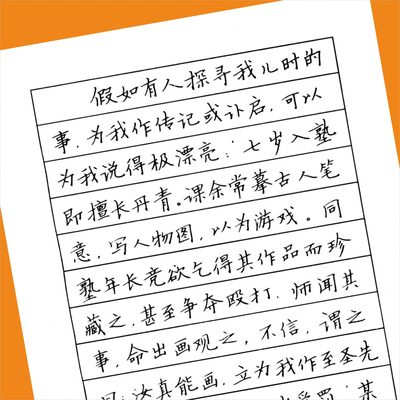 假如有人探寻我儿时的
事,为我作传记或讣启,可以
为我说得极漂亮:“七岁入塾
即擅长丹青。课余常摹古人笔
意,写人物图,以为游戏。同
塾年长竞欲乞得其作品而珍
藏之,甚至争夺殴打。师闻其
事,命出画观之,不信,谓之
曰:汝真能画,立为我作至圣先